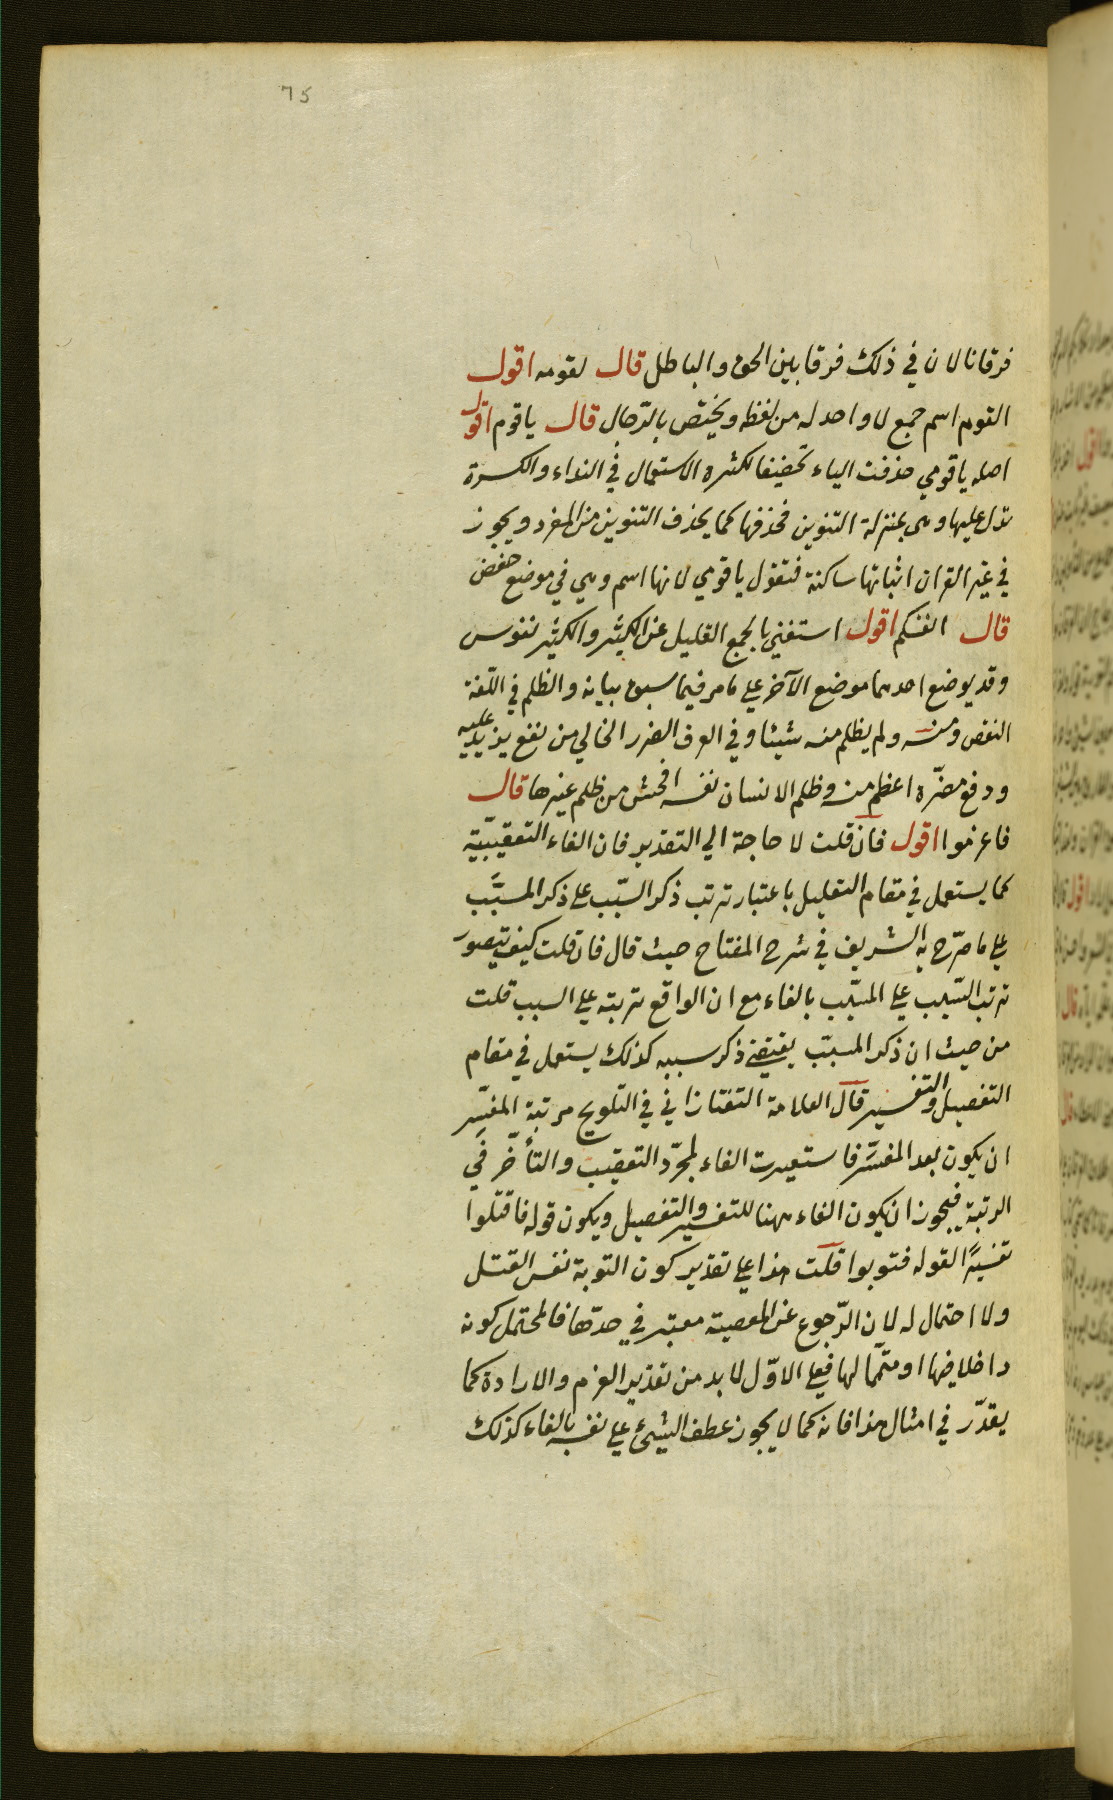 75
فرقانا لان في ذلك فرقا بين الحق والباطل قال لقومه اقول
القوم اسم جمع لا واحد له من لفظه ويختص بالرّجال قال يا قوم اقول
اصله يا قومي حذفت الياء تخفيفا لكثرة الاستعمال في النداء والكسرة
تدل عليها وهى بمنزلة التنوين فحذفها كما يحذف التنوين من المفرد ويجوز
في غير القران اثباتها ساكنة فتقول يا قومي لانها اسم وهي في موضع خفض
قال انفسكم اقول استغني بالجمع القليل عن الكثير والكثير نفوس
وقد يوضع احدهما موضع الآخر علي ما مر فيما سبق بيانه والظلم في اللّغة
النقص ومنه ولم يظلم منه شيئا وفي العرف الضرر الخالي من نفع يزيد عليه
ودفع مضرّة اعظم منه وظلم الانسان نفسه افحش من ظلم غيرها قال
فاعزموا اقول فان قلت لا حاجة الي التقدير فان الفاء التعقيبيّة
كما يستعمل في مقام التعليل باعتبار ترتب ذكر السّبب علي ذكر المسبَّب
علي ما صرّح به الشريف في شرح المفتاح حيث قال فان قلت كيف يتصور
ترتب السّبب علي المسبّب بالفاء مع ان الواقع ترتبه علي السبب قلت
من حيث ان ذكر المسبّب يقتضي ذكر سببه كذلك يستعمل في مقام
التفصيل والتفسير قال العلامة التفتازاني في التلويح مرتبة المفسِّر
ان يكون بعد المفسَّر فاستعيرت الفاء لمجرّد التعقيب والتأخّر في
الرتبة فيجوز ان يكون الفاء ههنا للتفسير والتفصيل ويكون قوله فاقتلوا
تفسيرًا لقوله فتوبوا قلت هذا علي تقدير كون التوبة نفس القتل
ولا احتمال له لان الرّجوع عن المعصية معتبر في حدّها فالمحتمل كونه
داخلا فيها او متمّما لها فعلي الاوّل لا بد من تقدير العزم والارادة كما
يقدّر في امثال هذا فانه كما لا يجوز عطف الشيئ علي نفسه بالفاء كذلك